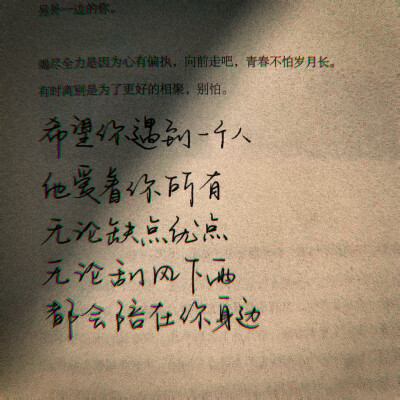 另外一边的你。
竭尽全力是因为心有偏执，向前走吧，青春不怕岁月长。
有时离别是为了更好的相聚，别怕。
希望你遇到一个人
他爱着你所有
无论缺点优点
无论刮风下雨
都会陪在你身边